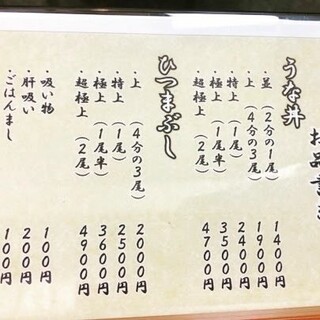 お品書き
うな丼
・並（2分の1尾） 1400円
・上（4分の3尾） 1900円
・特上（1尾） 2400円
・極上（1尾半） 3500円
・超極上（2尾） 4700円
ひつまぶし
・上（4分の3尾） 2000円
・特上（1尾） 2500円
・極上（1尾半） 3600円
・超極上（2尾） 4900円
・吸い物 100円
・肝吸い 200円
・ごはんまし 100円